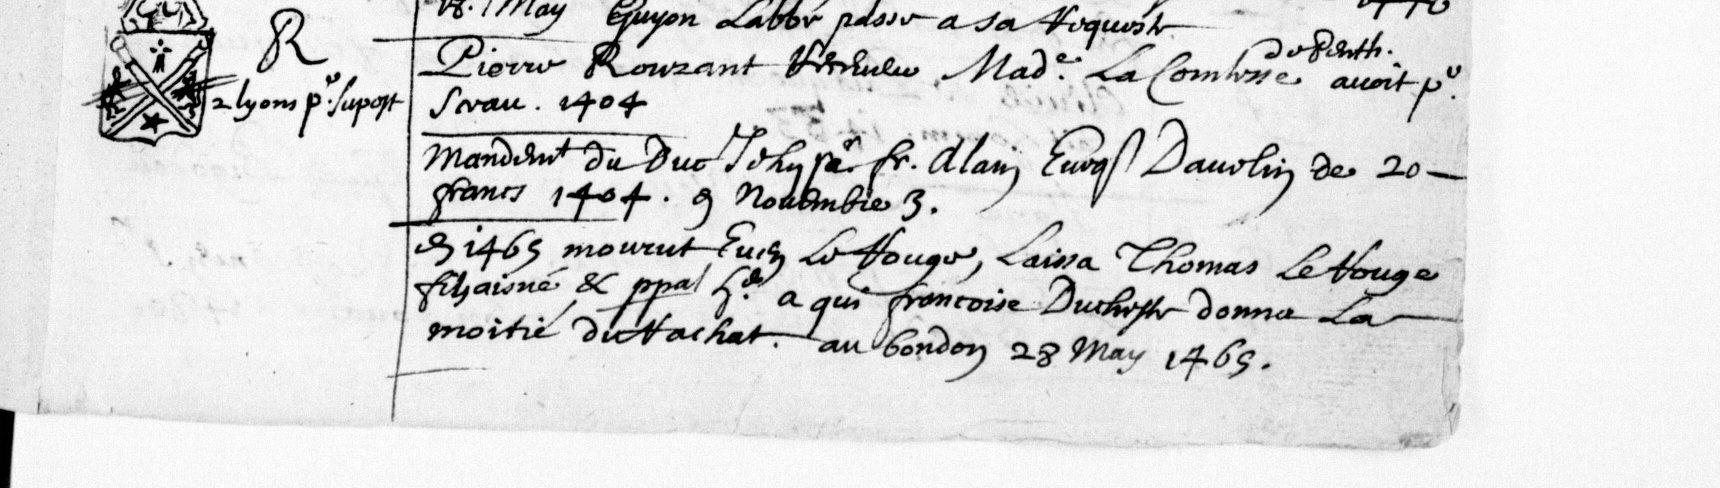 18. May Guyon Labbé passe a sa Requeste
R
2 lyons pr. suport
de Penth.
Pierre Rouzant Madᵉ. La Comtesse avoit pʳ.
Sceau. 1404
Mandemᵗ du Duc Jehan pᵃʳ fr. Alain Euesq Dauolin de 20 —
francs 1404. 9 Nouembre 3.
En 1465 mourut Euen Le Rouge, Laissa Thomas Le Rouge
fils aisné & ppal hᵉʳ. a qui francoise Duchesse donna La
moitié du Rachat. au bondon 28 May 1465.